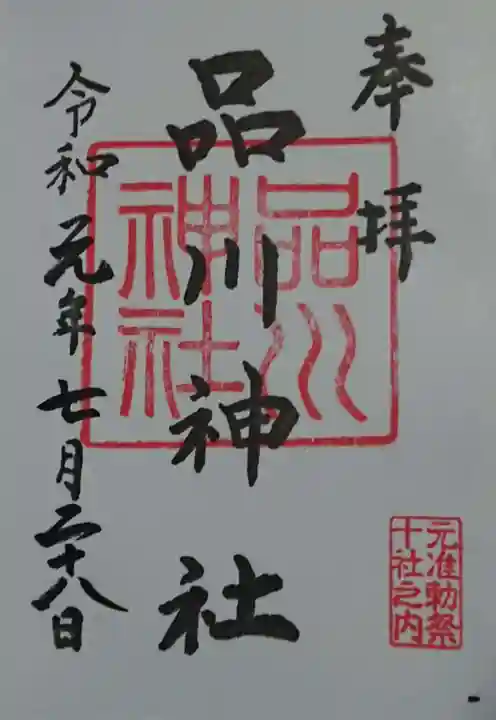 奉拝
品川神社
令和元年七月二十八日
品川
神社
元准勅祭
十社之内